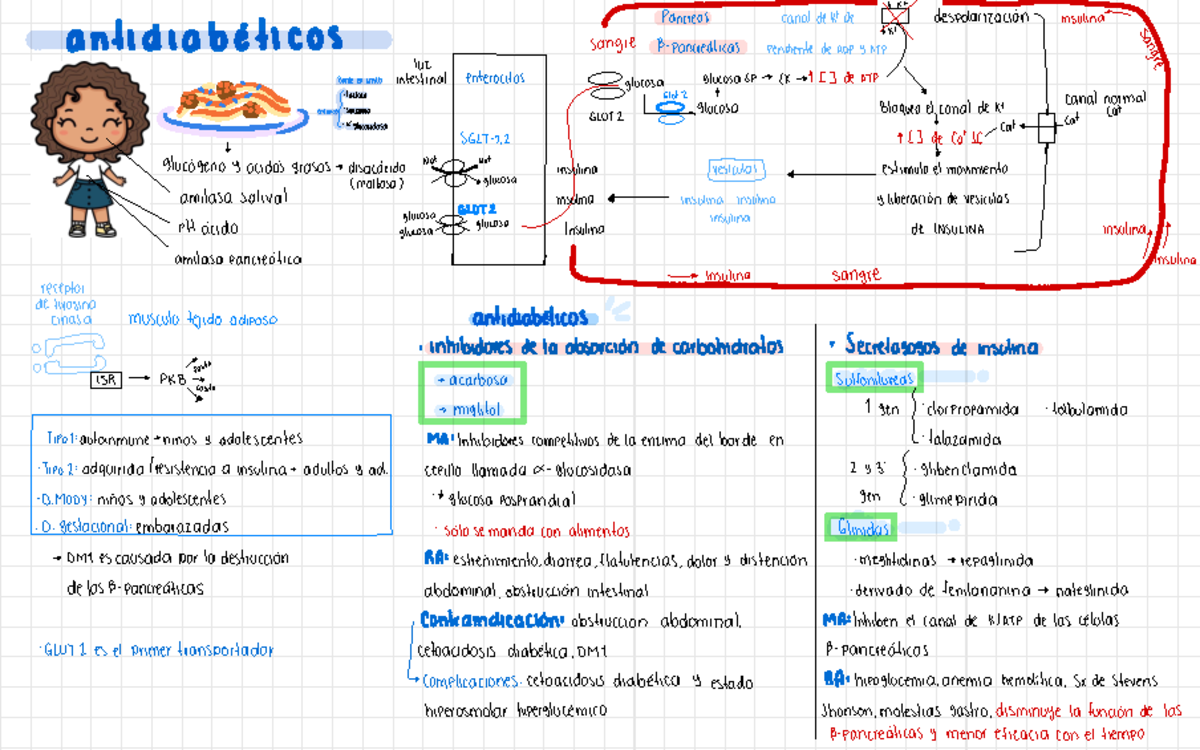 antidiabéticos
luz
intestinal
enterocitos
SGLT-1,2
Nat
Nat
glucosa
GLUT2
glucosa
glucosa
glucosa
glucógeno y ácidos grasos → disacárido
(maltosa)
amilasa salival
pH ácido
amilasa pancreática
Pancreas
canal de K+ de
despolarización
insulina
sangre
β-pancreáticas
Pendiente de ADP y ATP
sangre
glucosa
GLUT 2
Glut 2
glucosa
glucosa 6P → CK → ↑ [ ] de ATP
Bloquea el canal de K+
↑ [ ] de Ca+ IC
Cat
Cat
canal normal
Cat
insulina
insulina
Insulina
vesículas
insulina insulina
insulina
estimula el movimiento
y liberación de vesículas
de INSULINA
insulina
insulina
→ Insulina
sangre
receptor
de tirosina
cinasa
musculo tejido adiposo
ISR → PKB
Tipo 1: autoinmune → niños y adolescentes
·Tipo 2: adquirida / resistencia a insulina → adultos y ad.
·D.MODY: niños y adolescentes
·D. gestacional: embarazadas
→ DM1 es causada por la destrucción
de las β-pancreáticas
·GLUT 1 es el primer transportador
antidiabéticos
· inhibidores de la absorción de carbohidratos
→ acarbosa
→ miglitol
MA: Inhibidores competitivos de la enzima del borde en
cepillo llamada α-glucosidasa
·↓ glucosa posprandial
· sólo se manda con alimentos
RA: estreñimiento, diarrea, flatulencias, dolor y distención
abdominal, obstrucción intestinal
Contraindicación: obstrucción abdominal,
cetoacidosis diabética, DM1
Complicaciones: cetoacidosis diabética y estado
hiperosmolar hiperglucémico
· Secretagogos de insulina
Sulfonilureas
1 gen
·clorpropamida ·tolbutamida
·talazamida
2 y 3
gen
·glibenclamida
·glimepirida
Glinidas
·meglitidinas → repaglinida
·derivado de fenilananina → nateglinida
MA: Inhiben el canal de K/ATP de las células
β-pancreáticas
RA: hipoglucemia, anemia hemolítica, Sx de Stevens
Jhonson, molestias gastro, disminuye la función de las
β-pancreáticas y menor eficacia con el tiempo